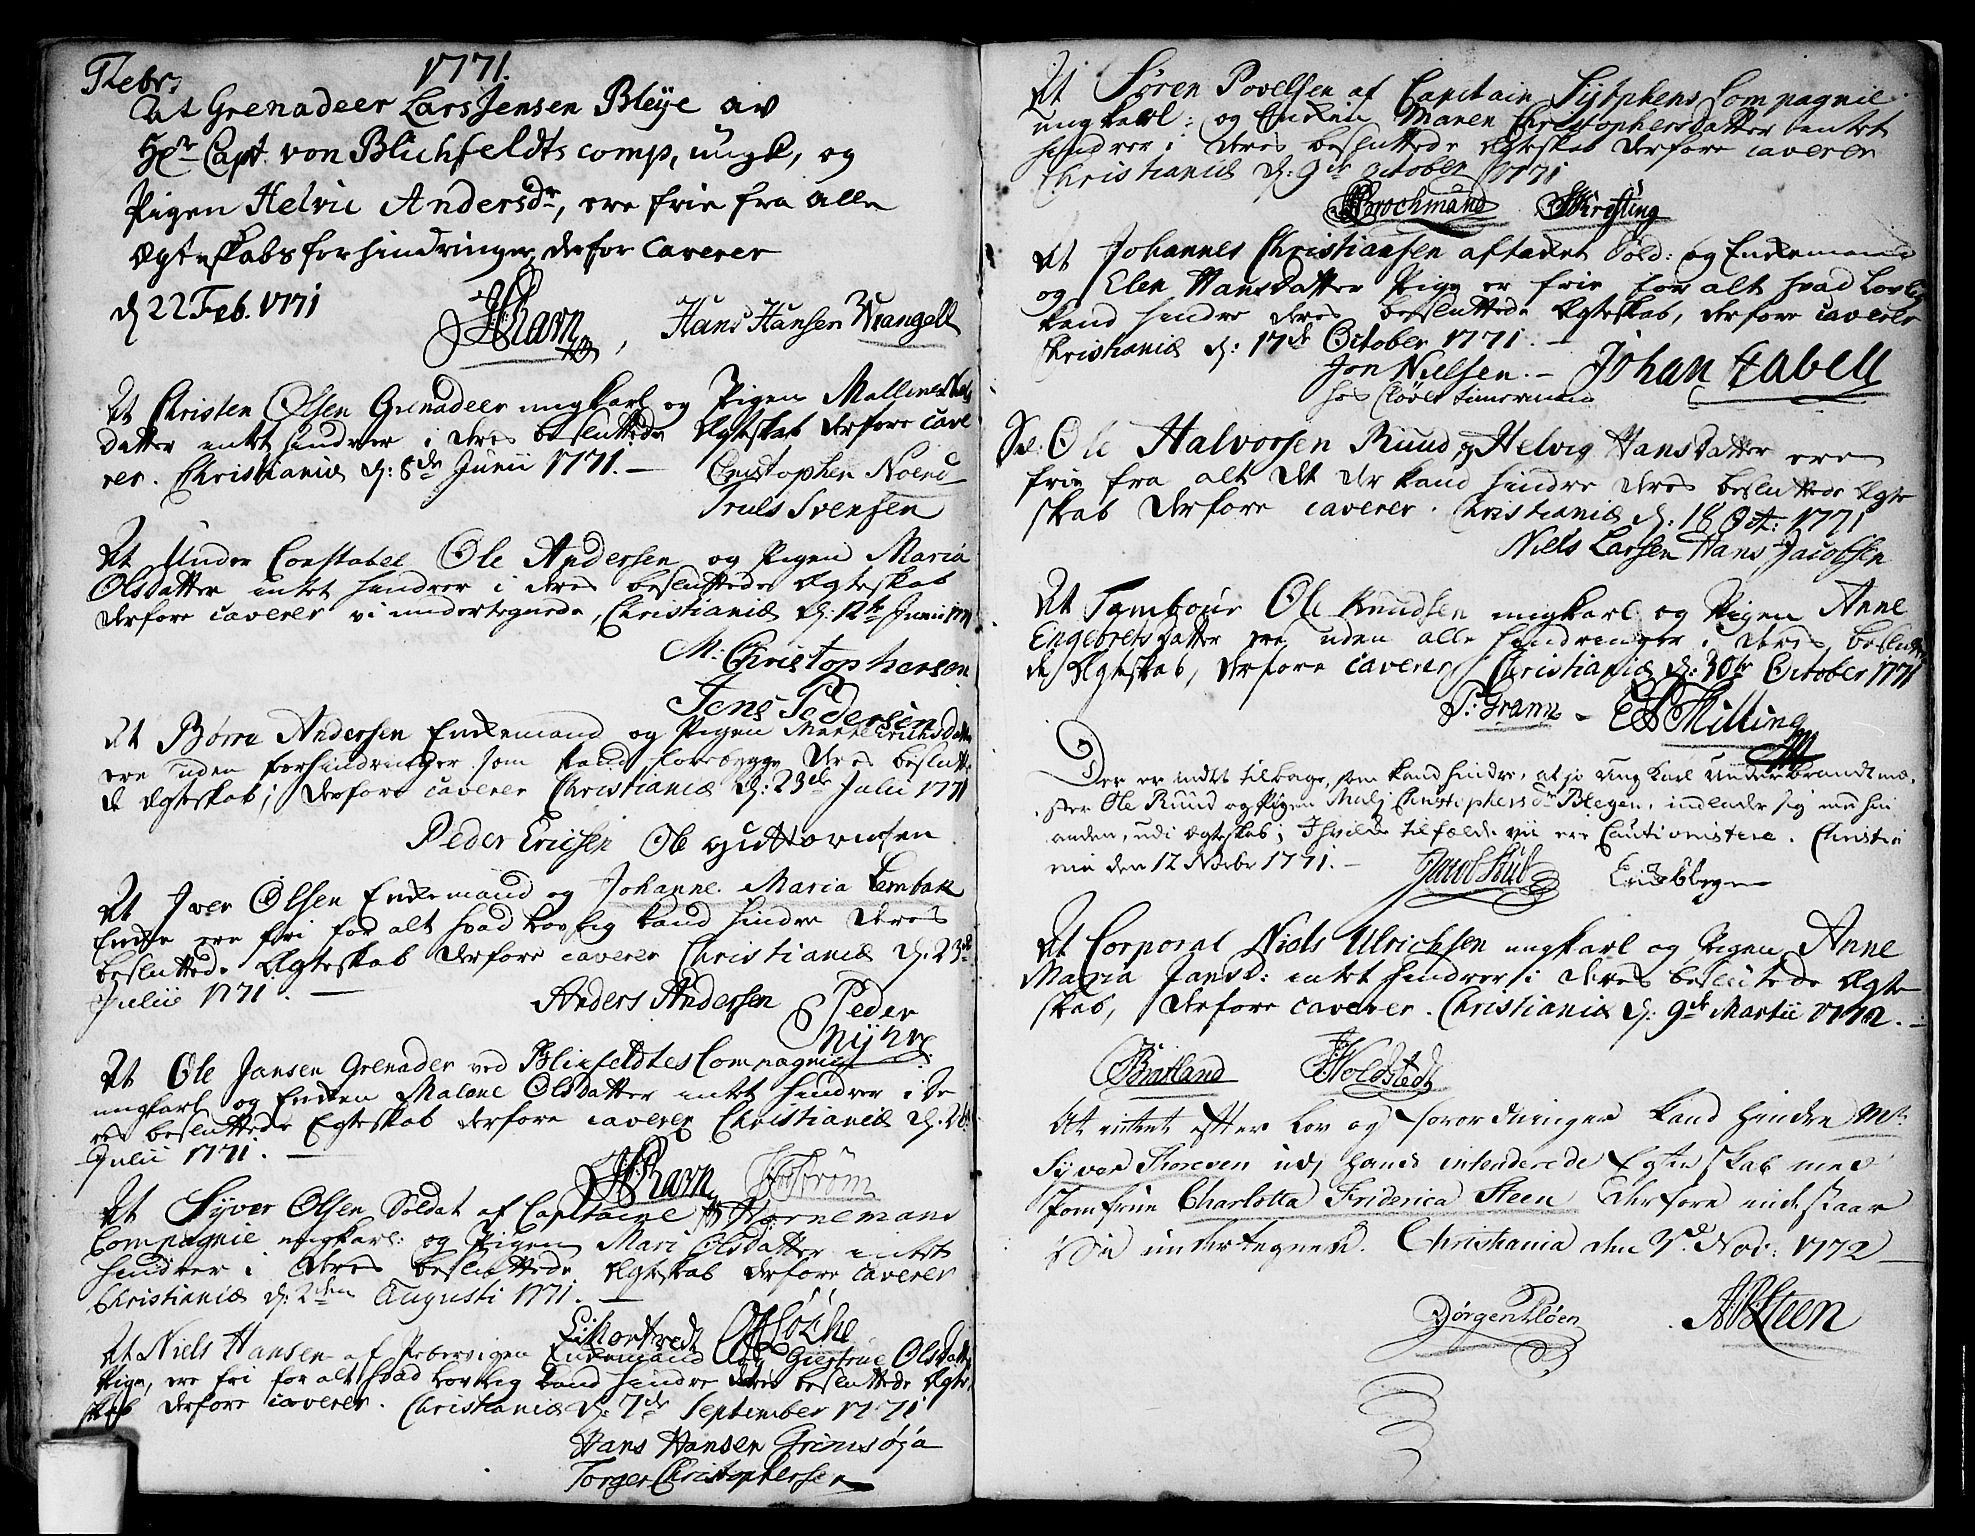 Febr: 1771.
At Grenadeer Lars Jensen Bleye av
Hr Capt. von Blichfeldts comp, ungk, og
Pigen Helvie Andersdr, ere frie fra alle
Ægteskabs forhindringer, derfor Caverer
d 22 Feb. 1771
JHRavn, Hans Hansen Wrangell
At Christen Olsen Grenadeer ungkarl og Pigen Malline
datter intet hindrer i deres besluttede Ægteskab derfore cave
rer. Christianiæ d: 8de Junii 1771. —
Christopher Noerd
Truls Svensen
At Under Constabel Ole Andersen og Pigen Maria
Olsdatter intet hindrer i deres besluttede Ægteskab
derfore caverer vi undertegnede, Christianiæ d: 12te Junii 1771
M: Christophersen
Jens Pedersen
At Børre Andersen Enkemand og Pigen Marte Erichsdatter
ere uden forhindringer som kand forebygge deres beslutte
de Ægteskab; derfore caverer Christianiæ d: 23de Julii 1771
Peder Ericsen Ole Guttormsen
At Iver Olsen Enkemand og Johanne Maria Lembak
Enke ere fri for alt hvad Lovlig kand hindre deres
besluttede Ægteskab derfore caverer Christianiæ d. 23de
Julii 1771. —
Anders Andersen Peder
At Ole Jansen Grenader ved Blixfeldtes Compagnie
ungkarl og Enken Malene Olsdatter intet hindrer i de
res besluttede Egteskab derfore caverer Christianiæ d. 26
Julii 1771. —
JHRavn
At Syver Olsen Soldat af Capitaine Hornemans
Compagnie ungkarl: og Pigen Mari Olsdatter intet
hindrer i deres besluttede Ægteskab derfore caverer
Christianiæ d: 2den Augusti 1771. —
At Niels Hansen af Pebervigen Enkemand og Giertrue Olsdatter
Pige, ere fri for alt hvad Lovlig kand hindre deres besluttede Ægte
skab derfore caverer. Christianiæ d: 7de September 1771
Hans Hansen Grimsøja
Torger Christophersen
At Søren Povelsen af Capitain Sytphens Compagnie
ungkarl: og Enken Maren Christophersdatter intet
hindrer i deres besluttede Ægteskab derfore caverer
Christianiæ d: 9de October 1771
Brochmand
At Johannes Christiansen aftaket Sold: og Enkemand
og Elen Hansdatter Pige er frie for alt hvad Lovlig
kand hindre deres besluttede Ægteskab, derfore caverer
Christianiæ d: 17de October 1771. —
Jon Nielsen. — Johan Zabell
hos Cløver
Ole Halvorsen Ruud og Helvig Hansdatter ere
frie fra alt det der kand hindre deres besluttede Ægte
skab derfore caverer. Christianiæ d: 18 Oct: 1771
Niels Larsen Hans Jacobsen
At Tambour Ole Knudsen ungkarl og Pigen Anne
Engebretsdatter ere uden alle hindringer i deres beslutte
de Ægteskab, derfore caverer Christianiæ d: 30te October 1771
P: Gram — Milling
Der er intet tilbage, som kand hindre, at jo Ung Karl Under brandtme,
ster Ole Ruud og Pigen Malj Christophersdr Blegen, indlader sig med hin
anden, udi Ægteskab; I hvilde tilfælde vii ere Cautionistere. Christia
nia den 12 Novbr 1771. — Jacob
At Corporal Niels Ulrichsen ungkarl og Pigen Anne
Maria Jansd: intet hindrer i deres beslutede Ægte
skab, derfore caverer. Christianiæ d: 9de Martii 1772. —
Bratland Holdstedt
At intet efter Lov og forordninger kand hindre Mr:
Syver Thoresen udj hans intenderede Egteskab med
Jomfrue Charlotta Friderica Steen derfore indestaar
Vii undertegnede. Christiania den 3de Nov: 1772 —
Jørgen Pløen Steen